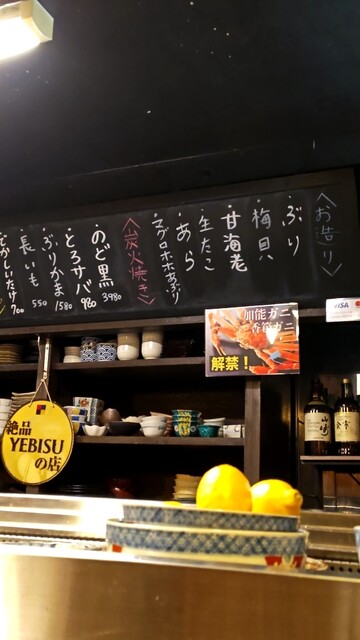 〈お造り〉
・ぶり
・梅貝
・甘海老
・生たこ
・あら
・マグロホホあぶり
〈炭火焼き〉
・のど黒 3980
・とろサバ 980
・ぶりかま 1580
・長いも 550
しいたけ 700
VISA
加能ガニ
香箱ガニ
解禁！
絶品
YEBISU
の店